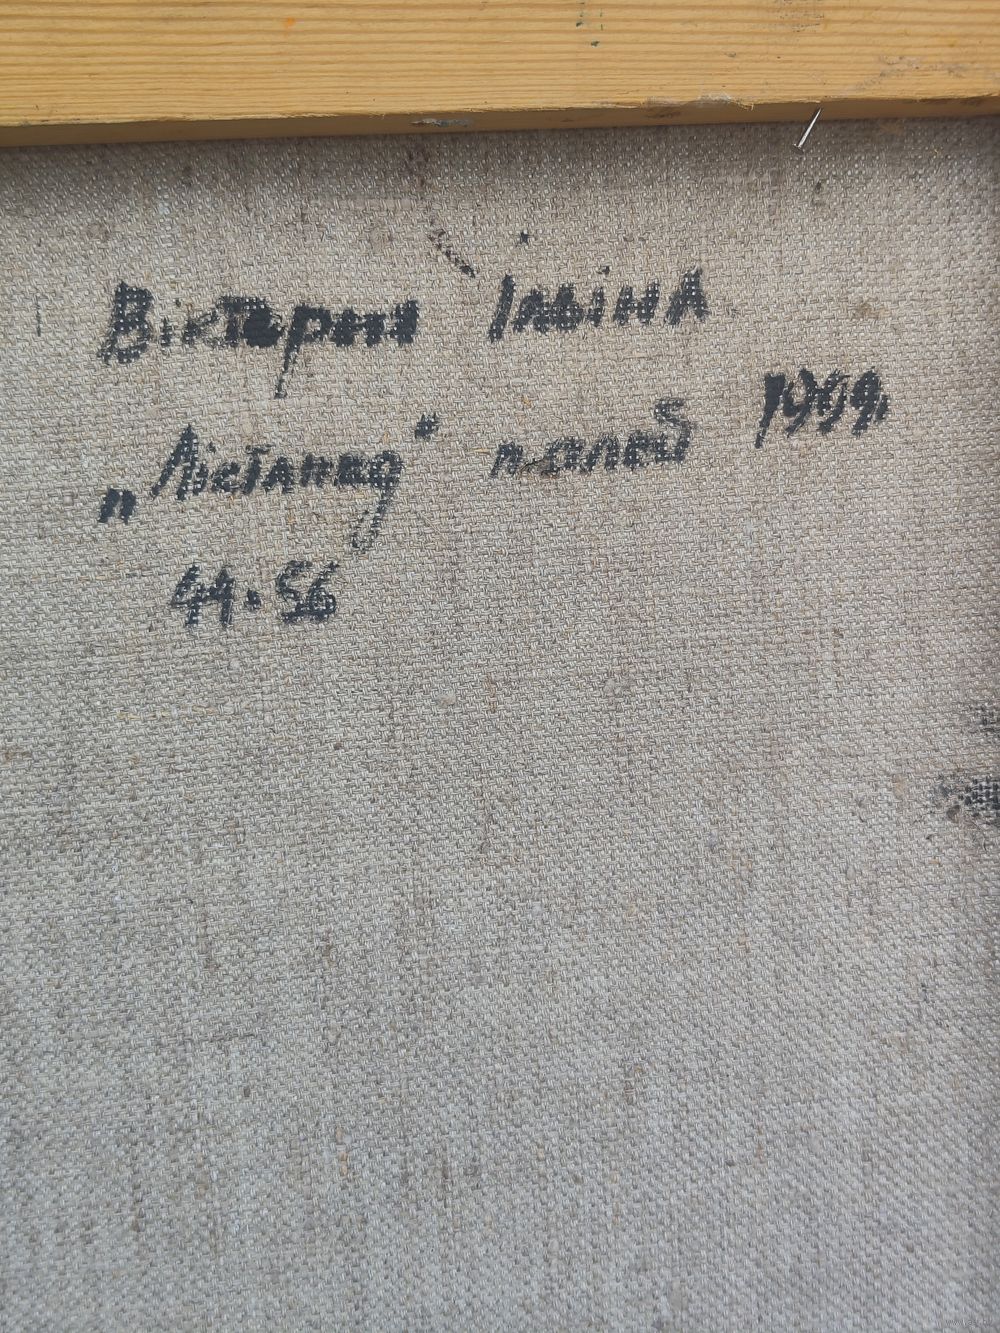 Вікторыя Ільіна
„Лістапад" п. алей 1999
44·56